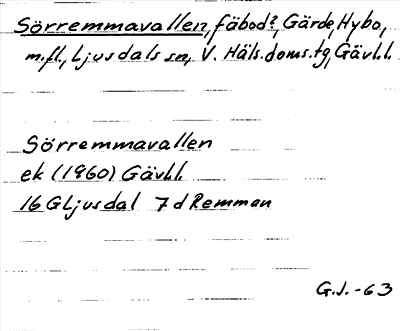 Sörremmavallen, fäbod?, Gärde, Hybo,
m.fl., Ljusdals sn, V. Häls.doms.tg, Gävl.l.
Sörremmavallen
ek (1960) Gävl.l.
16G Ljusdal 7d Remman
G.J. -63